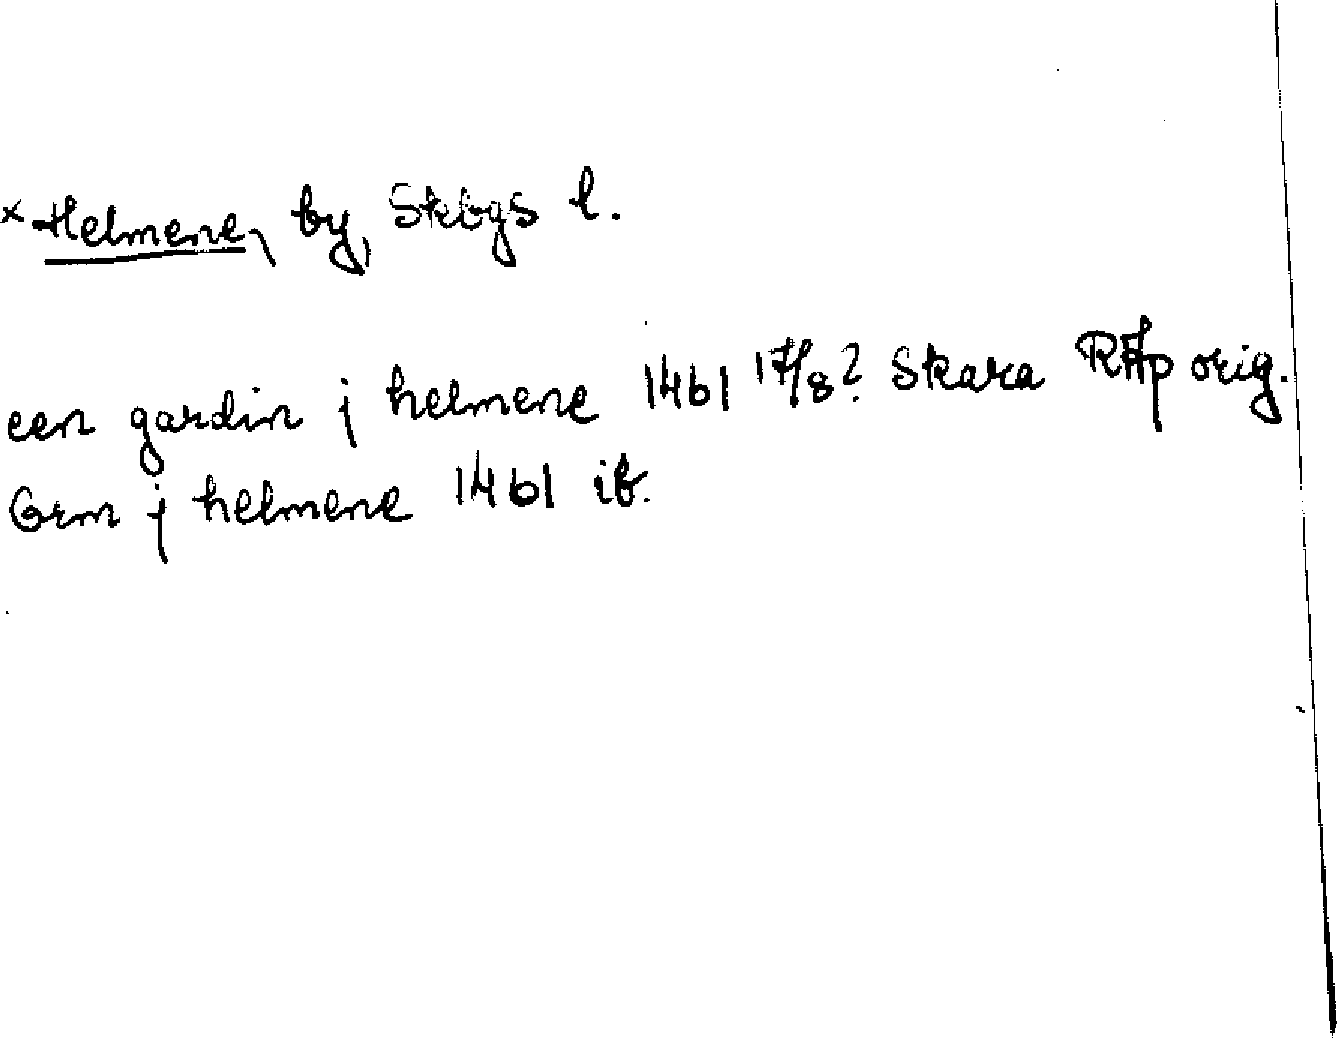 × Helmene, by, Skbgs l.
een gardin j helmene 1461 17/8? Skara RAp orig.
Grm j helmene 1461 ib.